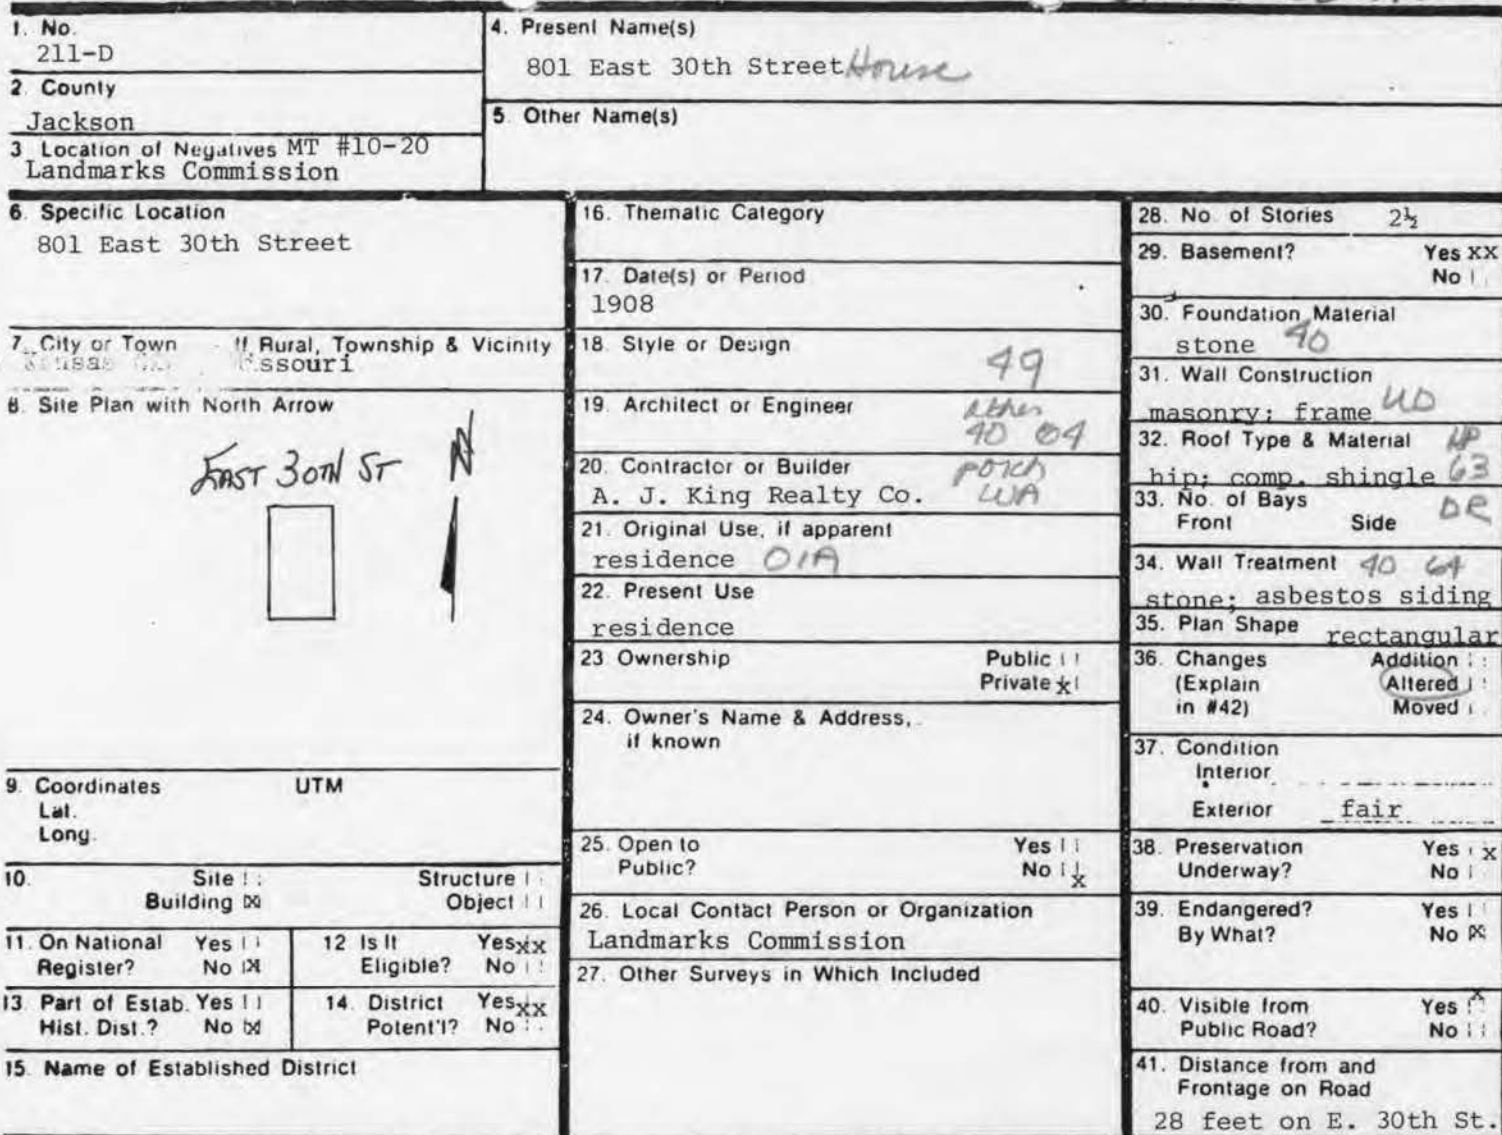 1. No.
211-D
2. County
Jackson
3 Location of Negatives MT #10-20
Landmarks Commission
4. Present Name(s)
801 East 30th Street House
5. Other Name(s)
6. Specific Location
801 East 30th Street
7. City or Town If Rural, Township & Vicinity
8. Site Plan with North Arrow
EAST 30TH ST N
9. Coordinates UTM
Lat.
Long.
10. Site Structure
Building X Object
11. On National Yes
Register? No X
12 Is It Yes xx
Eligible? No
13. Part of Estab. Yes
Hist. Dist.? No X
14. District Yes xx
Potent'l? No
15. Name of Established District
16. Thematic Category
17. Date(s) or Period
1908
18. Style or Design
49
19. Architect or Engineer
40 04
20. Contractor or Builder porch
A. J. King Realty Co. WA
21. Original Use, if apparent
residence 01A
22. Present Use
residence
23 Ownership Public
Private x
24. Owner's Name & Address,
if known
25. Open to Yes
Public? No x
26. Local Contact Person or Organization
Landmarks Commission
27. Other Surveys in Which Included
28. No. of Stories 2½
29. Basement? Yes XX
No
30. Foundation Material
stone 40
31. Wall Construction
masonry; frame UD
32. Roof Type & Material HP
hip; comp. shingle 63
33. No. of Bays DR
Front Side
34. Wall Treatment 40 64
stone; asbestos siding
35. Plan Shape rectangular
36. Changes Addition
(Explain Altered
in #42) Moved
37. Condition
Interior
Exterior fair
38. Preservation Yes x
Underway? No
39. Endangered? Yes
By What? No X
40. Visible from Yes x
Public Road? No
41. Distance from and
Frontage on Road
28 feet on E. 30th St.